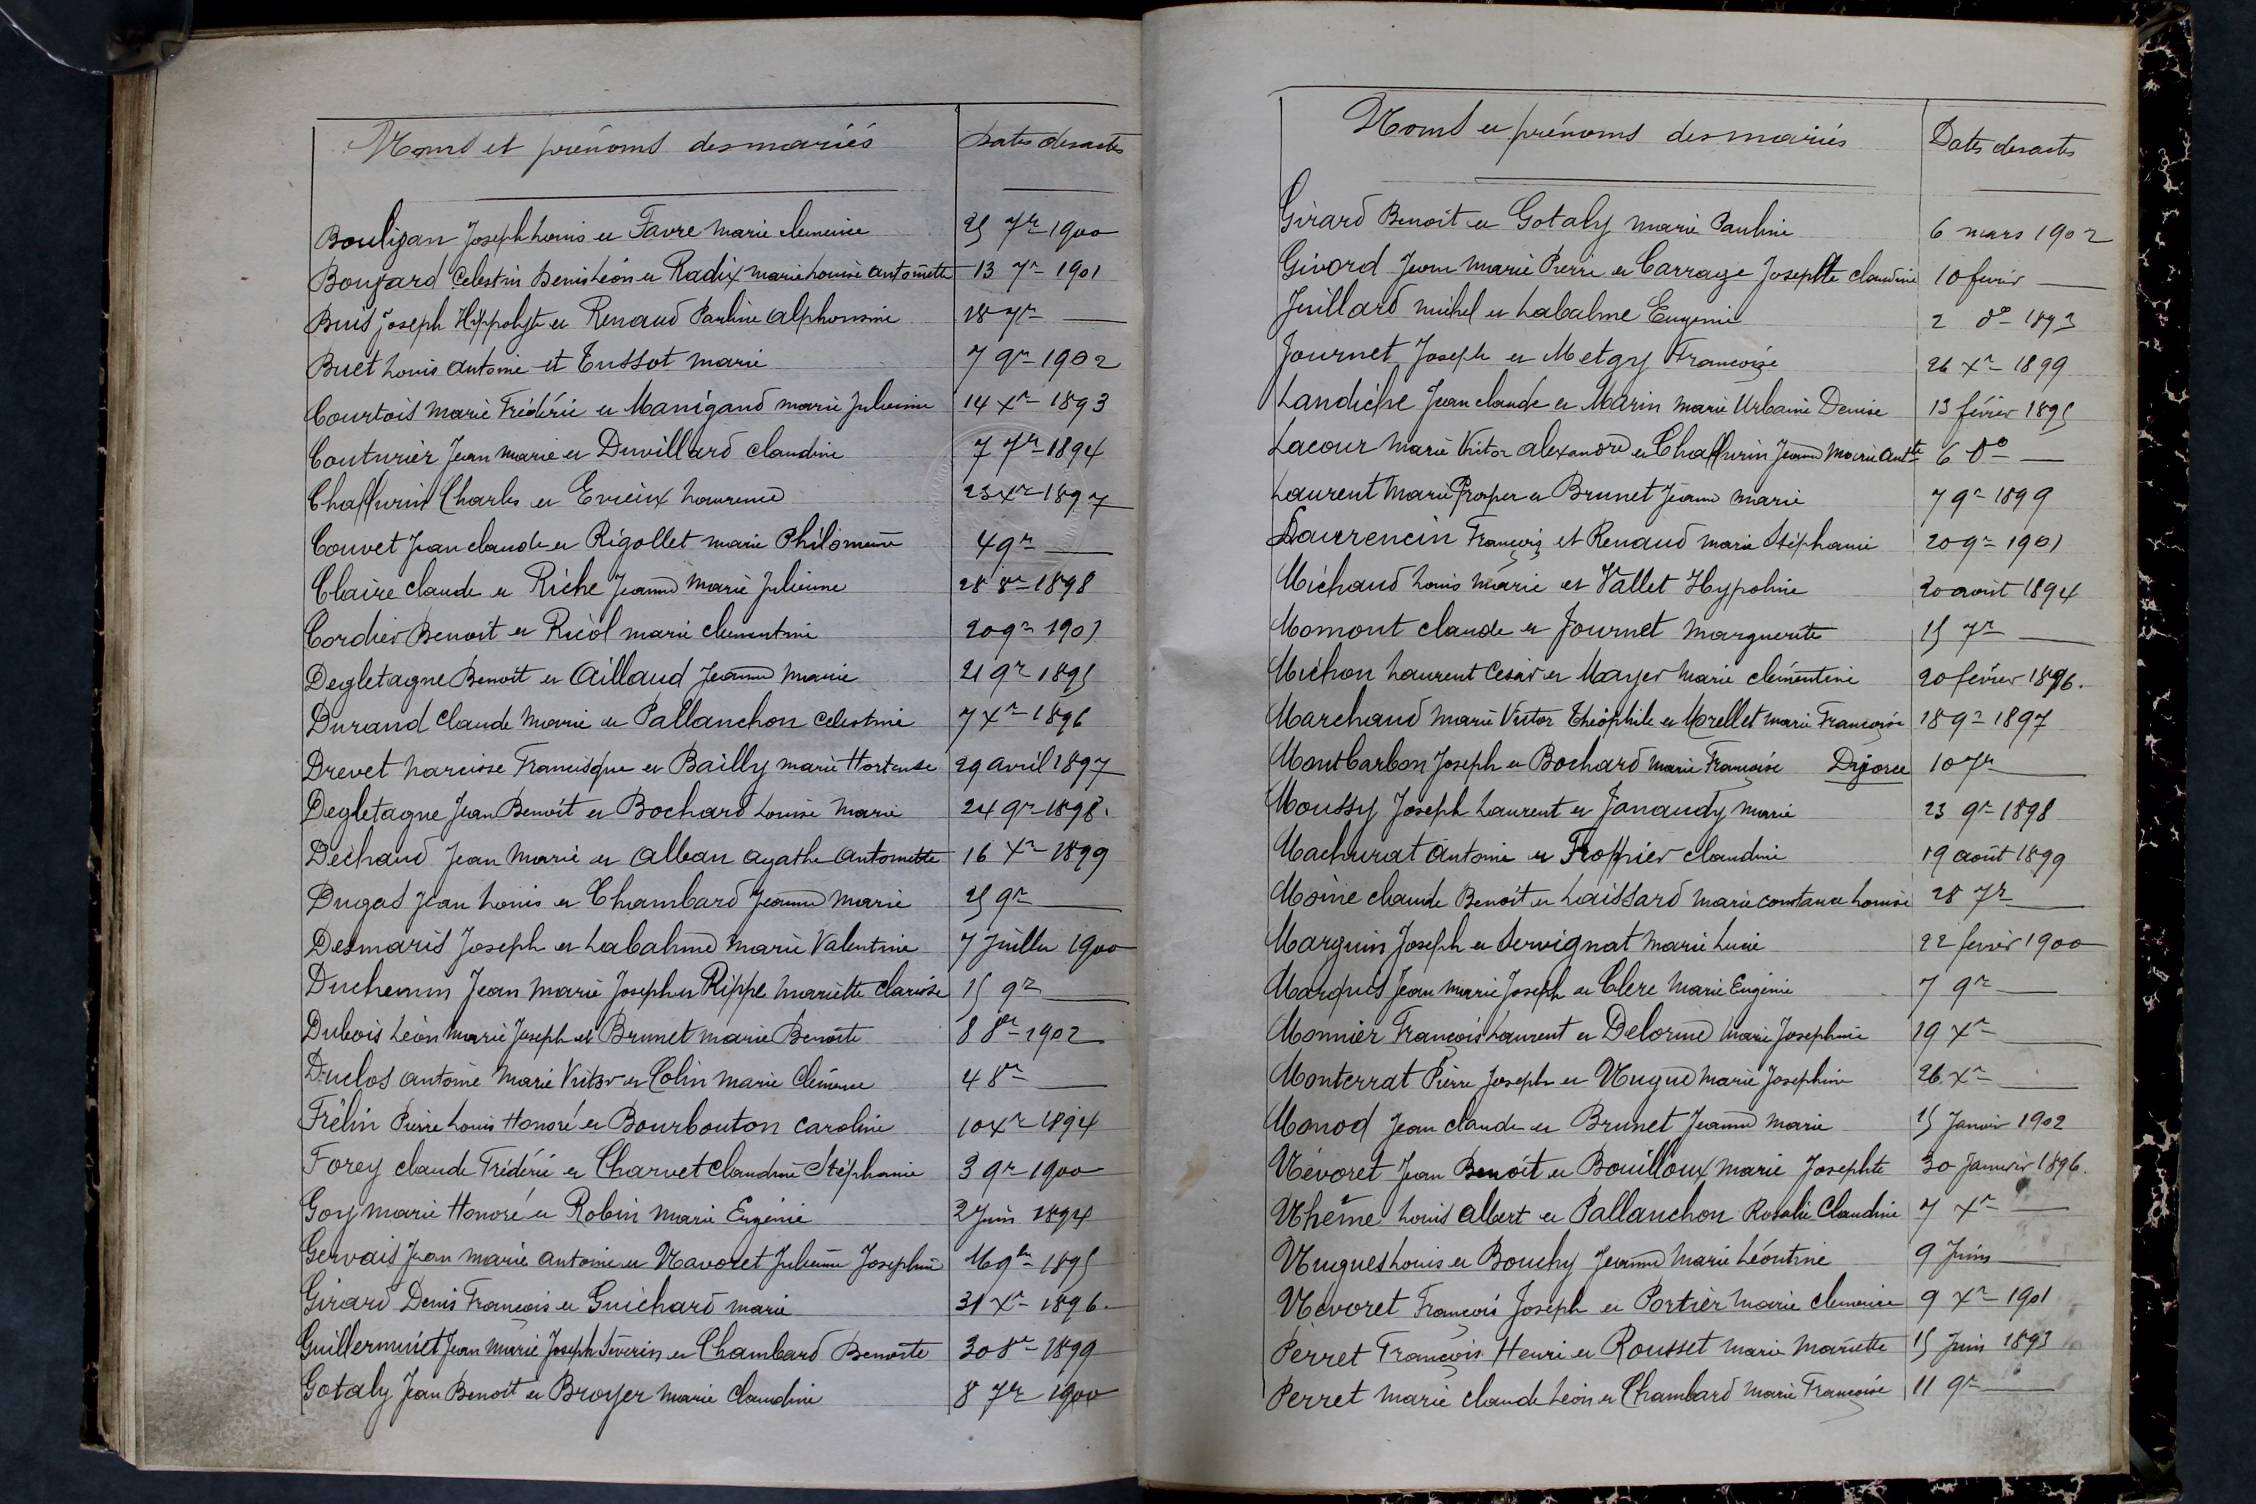 Noms et prénoms des mariés Dates des actes
Boulizan Joseph Louis et Favre Marie Clemence 25 7re 1900
Bougard Celestin Denis Léon et Radix Marie Louise Antoinette 13 7re 1901
Buis Joseph Hippolyte et Renaud Pauline Alphonsine 28 7re —
Buet Louis Antoine et Tussot Marie 7 9re 1902
Courtois Marie Frédéric et Manigand Marie Julienne 14 Xre 1893
Couturier Jean Marie et Duvillard Claudine 7 7re 1894
Chaffurin Charles et Evieux Laurence 23 Xre 1897
Couvet Jean Claude et Rigollet Marie Philomène 4 9re —
Claire Claude et Riche Jeanne Marie Julienne 28 8re 1898
Cordier Benoit et Riçol Marie Clementine 20 9re 1901
Degletagne Benoît et Aillaud Jeanne Marie 21 9re 1895
Durand Claude Marie et Pallanchon Celestine 7 Xre 1896
Drevet Narcisse Francisque et Bailly Marie Hortense 29 avril 1897
Degletagne Jean Benoît et Bochard Louise Marie 24 9re 1898.
Dechaud Jean Marie et Alban Agathe Antoinette 16 Xre 1899
Dugas Jean Louis et Chambard Jeanne Marie 25 9re —
Desmaris Joseph et Labalme Marie Valentine 7 Juillet 1900
Duchemin Jean Marie Joseph et Rippe Mariette Clarisse 15 9re —
Dubois Léon Marie Joseph et Brunet Marie Benoite 8 8re 1902
Duclos Antoine Marie Victor et Colin Marie Clémence 4 8re —
Frélin Pierre Louis Honoré et Bourbouton Caroline 10 Xre 1894
Forey Claude Frédéric et Charvet Claudine Stéphanie 3 9re 1900
Goy Marie Honoré et Robin Marie Eugénie 2 Juin 1894
Gervais Jean Marie Antoine et Navoret Julienne Josephine 16 9bre 1895
Girard Denis François et Guichard Marie 31 Xre 1896.
Guillerminet Jean Marie Joseph Séverin et Chambard Benoite 30 8re 1899
Gotaly Jean Benoît et Broyer Marie Claudine 8 7re 1900
Noms et prénoms des mariés Dates des actes
Girard Benoît et Gotaly Marie Pauline 6 mars 1902
Givord Jean Marie Pierre et Carrage Josephte Claudine 10 fevrier —
Juillard Michel et Labalme Eugenie 2 do 1893
Journet Joseph et Metgy Françoise 26 Xre 1899
Landiche Jean Claude et Marin Marie Urbaine Denise 13 février 1895
Lacour Marie Victor Alexandre et Chaffurin Jeanne Marie Antte 6 do —
Laurent Marie Prosper et Brunet Jeanne Marie 7 9re 1899
Laurencin François et Renaud Marie Stéphanie 20 9re 1901
Michaud Louis Marie et Vallet Hypoline 20 août 1894
Momont Claude et Journet Marguerite 15 7re —
Michon Laurent Cesar et Mayer Marie Clémentine 20 février 1896.
Marchaud Marie Victor Théophile et Morellet Marie Françoise 18 9re 1897
Montbarbon Joseph et Bochard Marie Françoise Divorce 10 7re —
Moussy Joseph Laurent et Janaudy Marie 23 9re 1898
Machurat Antoine et Froppier Claudine 19 août 1899
Moine Claude Benoît et Laissard Marie Constance Louise 28 7re —
Marguin Joseph et Servignat Marie Lucie 22 fevrier 1900
Marquis Jean Marie Joseph et Clere Marie Eugénie 7 9re —
Monnier François Laurent et Delorme Marie Josephine 19 Xre —
Monterrat Pierre Joseph et Nugue Marie Josephine 26 Xre —
Monod Jean Claude et Brunet Jeanne Marie 15 Janvier 1902
Névoret Jean Benoît et Bouilloux Marie Josephte 30 Janvier 1896.
Nhême Louis Albert et Pallanchon Rosalie Claudine 7 Xre —
Nugues Louis et Bouchy Jeanne Marie Léontine 9 Juin —
Névoret François Joseph et Portier Marie Clemence 9 Xre 1901
Perret François Henri et Rousset Marie Mariette 15 Juin 1893
Perret Marie Claude Léon et Chambard Marie Françoise 11 9re —